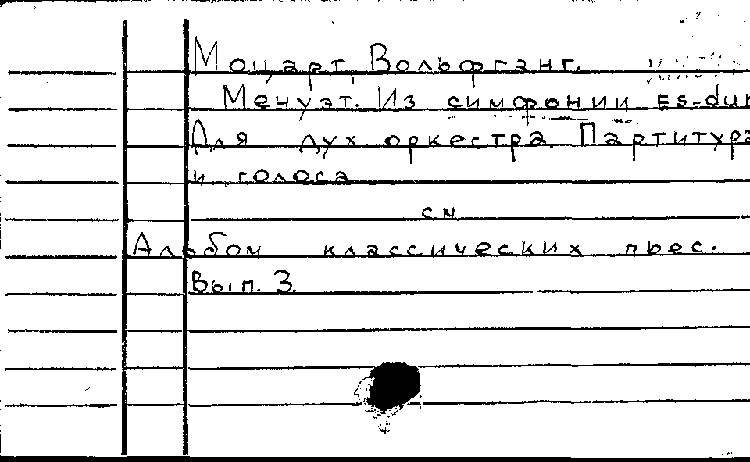 Моцарт, Вольфганг.
Менуэт. Из симфонии Es-dur
Для дух оркестра. Партитура
и голоса
см
Альбом классических пьес.
Вып. 3.